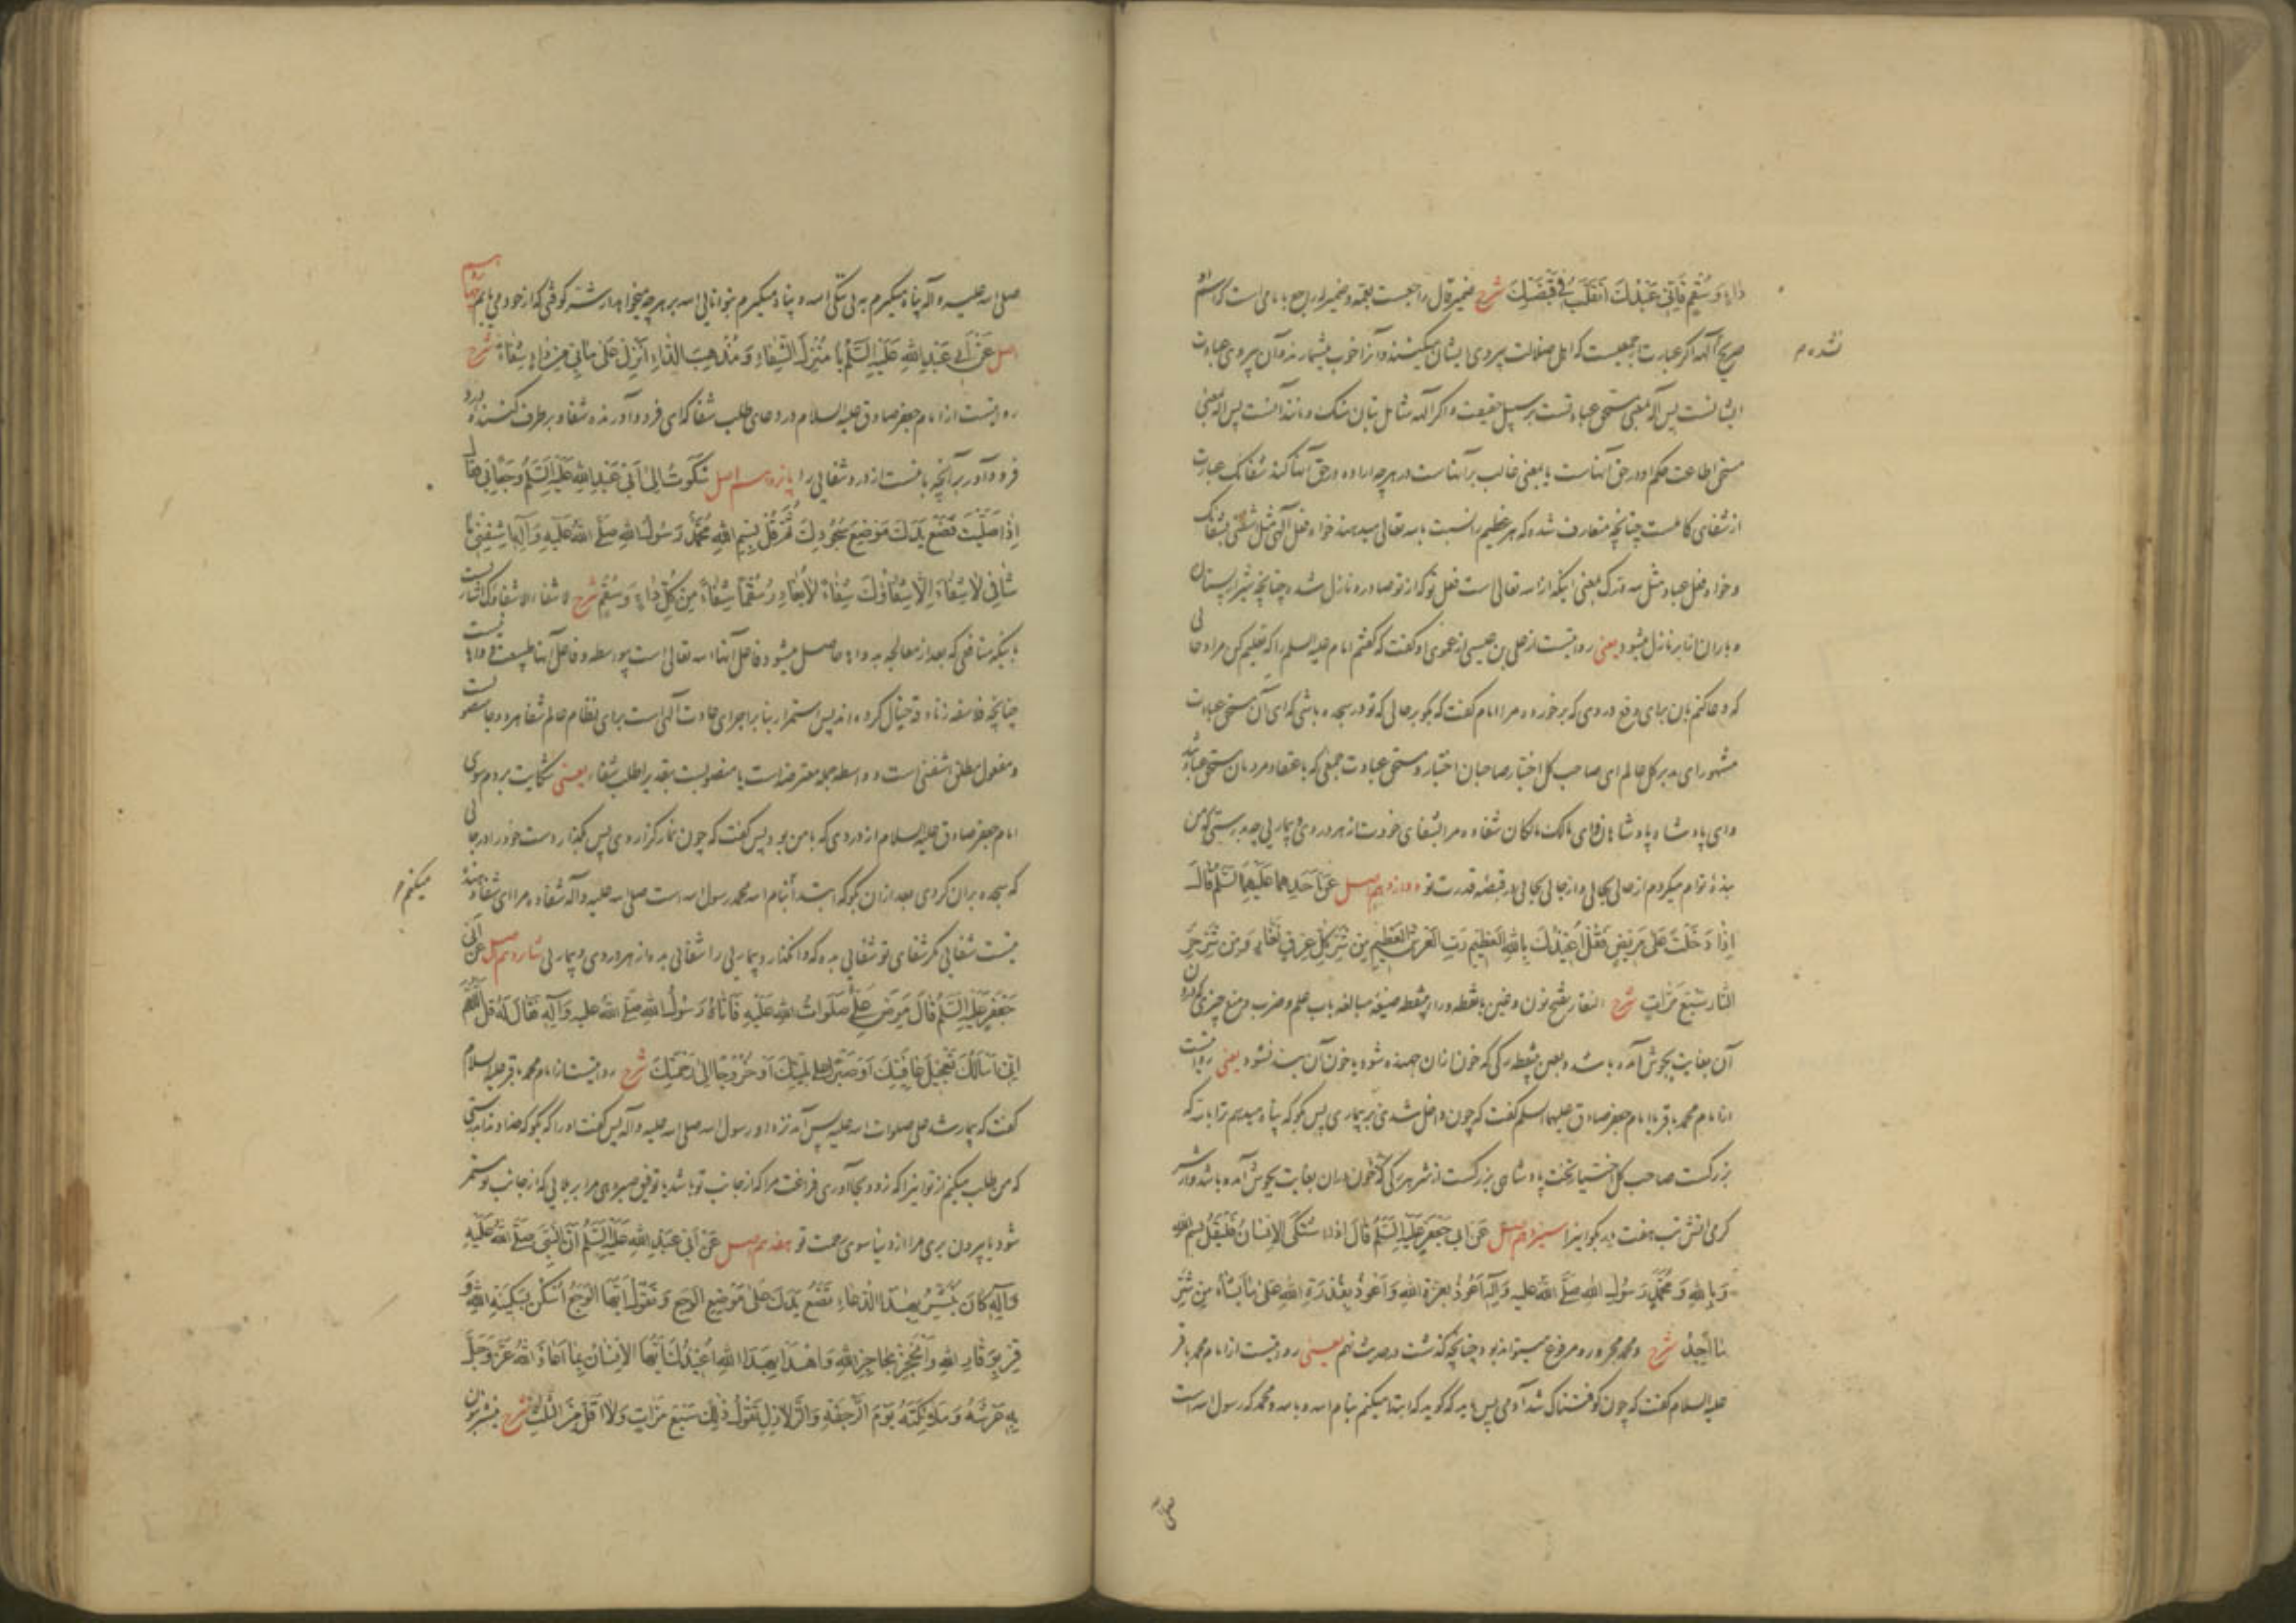 داءٍ وَ سُقْمٍ فَاِنّی عَبْدُكَ اَتَقَلَّبُ فی قَبْضَتِكَ شرح ضمیر قال راجعست بعمّه و ضمیر له راجع
صریح آلهه اگر عبارت از جمعیست که اهل ضلالت پیروی ایشان میکنند و آنرا خوب میشمارند و آن پیروی عبادت
ایشانست پس اله بمعنی مستحق عبادتست بر سبیل حقیقت و اگر آلهه شامل بتان سنگ و مانند آنست پس اله بمعنی
مستحق اطاعت حکم او در حق آنهاست یا بمعنی غالب بر آنهاست در هر چه اراده در حق آنها کند شفائک عبارت
از شفای کاملست چنانچه متعارف شده که هر عظیم را نسبت باسد تعالی میدهند خواه فعل الهی مثل اشفنی بشفائک
و خواه فعل عباد مثل لله درک بمعنی اینکه از اسد تعالی است فعل تو که از تو صادر و نازل شده چنانچه شیر از پستان
و باران از ابر نازل میشود یعنی روایتست از علی بن عیسی از عموی او گفت که گفتم امام علیه السلم را که تعلیم کن مرا دعائی
که دعا کنم بآن برای دفع دردی که بر خورده مرا امام گفت که بگو بر حالی که تو در سجده باشی که ای آن مستحق عبادت
مشهور ای مدبر کل عالم ای صاحب کل اختیار صاحبان اختیار و مستحق عبادت جمعی که باعتقاد مردمان مستحق عبادند
و ای پادشاه پادشاهان و ای مالک مالکان شفا ده مرا بشفای خودت از هر دردی و بیماریی چه بدرستی که من
بنده توام میگردم از حالی بحالی و از جائی بجائی در قبضه قدرت تو دوازدهم اصل عَنْ اَحَدِهِما عَلَیْهِمَا السَّلَمُ قالَ
اِذا دَخَلْتَ عَلی مَریضٍ فَقُلْ اُعیذُكَ بِاللهِ الْعَظیمِ رَبِّ الْعَرْشِ الْعَظیمِ مِنْ شَرِّ كُلِّ عِرْقٍ نَغّارٍ وَ مِنْ شَرِّ حَرِّ
النّارِ سَبْعَ مَرّاتٍ شرح النغار بفتح نون و غین بانقطه و راء بینقطه صیغه مبالغه باب علم و ضرب و منع چیزی که درون
آن بغایت بجوش آمده باشد و بعین بینقطه رگی که خون از آن جهنده شود یا خون آن بند نشود یعنی روایتست
از امام محمد باقر یا امام جعفر صادق علیهما السلم گفت که چون داخل شدی بر بیماری پس بگو که پناه میدهم ترا باسد که
بزرگست صاحب کل اختیار تخت پادشاهی بزرگست از شر هر رگی که خون در آن بغایت بجوش آمده باشد و از شر
گرمی آتش تب هفت بار بگو اینرا سیزدهم اصل عَنْ اَبی جَعْفَرٍ عَلَیْهِ السَّلَمُ قالَ اِذَا اشْتَكَی الْاِنْسانُ فَلْیَقُلْ بِسْمِ اللهِ
وَ بِاللهِ وَ مُحَمَّدٌ رَسُولُ اللهِ صَلَّی اللهُ عَلَیهِ وَ آلِه اَعُوذُ بِعِزَّةِ اللهِ وَ اَعُوذُ بِقُدْرَةِ اللهِ عَلی ما یَشاءُ مِنْ شَرِّ
ما اَجِدُ شرح و محمد مجرور و مرفوع میتواند بود چنانچه گذشت در حدیث نهم یعنی روایتست از امام محمد باقر
علیه السلام گفت که چون کوفتناک شد آدمی پس باید که گوید که ابتدا میکنم بنام اسد و باسد و محمد که رسول اسد است
صلی
صلی اسد علیه و آله پناه میگیرم به بی‌ننگی اسد و پناه میگیرم بتوانایی اسد بر هر چه میخواهد از شر کوفتی که از خود می‌یابم
اصل عَنْ اَبی عَبْدِ اللهِ عَلَیْهِ السَّلَمُ یا مُنْزِلَ الشِّفاءِ وَ مُذْهِبَ الدّاءِ اَنْزِلْ عَلی ما بی مِنْ داءٍ شِفاءً شرح
روایتست از امام جعفر صادق علیه السلام در دعای طلب شفا که ای فرود آورنده شفا و بر طرف کننده درد
فرود آور بر آنچه با منست از درد شفائی را پانزدهم اصل شَكَوْتُ اِلی اَبی عَبْدِ اللهِ عَلَیْهِ السَّلَمُ وَجَعًا بی فَقالَ
اِذا صَلَّیْتَ فَضَعْ یَدَكَ مَوْضِعَ سُجُودِكَ ثُمَّ قُلْ بِسْمِ اللهِ مُحَمَّدٌ رَسُولُ اللهِ صَلَّی اللهُ عَلَیْهِ وَ آلِه اِشْفِنی یا
شافی لا شِفاءَ اِلّا شِفاؤُكَ شِفاءً لا یُغادِرُ سُقْمًا شِفاءً مِنْ كُلِّ داءٍ وَ سُقْمٍ شرح لا شفاء الا شفاؤک اشارتست
باینکه منافعی که بعد از معالجه بدواها حاصل میشود فاعل آنها اسد تعالی است بیواسطه و فاعل آنها طبیعت دواها نیست
چنانچه فلاسفه زنادقه خیال کرده‌اند پس استمرار بنا بر اجرای عادت الهی است برای نظام عالم شفاء هر دو جا منصوبست
و مفعول مطلق اشفنی است و واسطه جمله معترضه است یا منصوبست بتقدیر اطلب شفاء یعنی شکایت بردم سوی
امام جعفر صادق علیه السلام از دردی که با من بود پس گفت که چون نماز گزاردی پس بگذار دست خود را در جائی
که سجده بر آن کردی بعد از آن بگو که ابتدا بنام اسد محمد رسول اسد است صلی اسد علیه و آله شفا ده مرا ای شفا دهنده
میکنم
نیست شفائی مگر شفای تو شفائی بده که وا نگذارد بیماریی را شفائی بده از هر دردی و بیماریی شانزدهم اصل عَنْ اَبی
جَعْفَرٍ عَلَیْهِ السَّلَمُ قالَ مَرِضَ عَلِیٌّ صَلَواتُ اللهِ عَلَیْهِ فَاَتاهُ رَسُولُ اللهِ صَلَّی اللهُ عَلَیهِ وَ آلِهِ فَقالَ لَهُ قُلْ اَللّهُمَّ
اِنّی اَسْاَلُكَ تَعْجیلَ عافِیَتِكَ اَوْ صَبْرًا عَلی بَلِیَّتِكَ اَوْ خُرُوجًا اِلی رَحْمَتِكَ شرح روایتست از امام محمد باقر علیه السلام
گفت که بیمار شد علی صلوات اسد علیه پس آمد نزد او رسول اسد صلی اسد علیه و آله پس گفت او را که بگو که خداوندا بدرستی
که من طلب میکنم از تو اینرا که زود بجا آوری فراغت مرا که از جانب تو باشد یا توفیق صبر دهی مرا بر بلایی که از جانب تو مستمر
شود یا بیرون بری مرا از دنیا سوی رحمت تو هفدهم اصل عَنْ اَبی عَبْدِ اللهِ عَلَیْهِ السَّلَمُ اَنَّ النَّبِیَّ صَلَّی اللهُ عَلَیْهِ
وَ آلِهِ كانَ یُنْشِرُ بِهذَا الدُّعاءِ تَضَعُ یَدَكَ عَلی مَوْضِعِ الْوَجَعِ وَ تَقُولُ اَیُّهَا الْوَجَعُ اُسْكُنْ بِسَكینَةِ اللهِ وَ
قِرْ بِوَقارِ اللهِ وَ انْحَجِزْ بِحاجِزِ اللهِ وَ اهْدَأْ بِهَدْءِ اللهِ اُعیذُكَ اَیُّهَا الْاِنْسانُ بِما اَعاذَ اللهُ عَزَّ وَ جَلَّ
بِهِ عَرْشَهُ وَ مَلائِكَتَهُ یَوْمَ الرَّجْفَةِ وَ الزَّلازِلِ تَقُولُ ذلِكَ سَبْعَ مَرّاتٍ وَ لا اَقَلَّ مِنَ الثَّلاثِ شرح